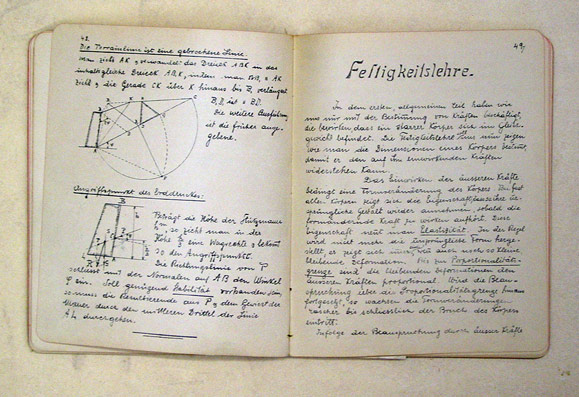 42.
Die Terrainlinie ist eine gebrochene Linie.
man zieht AK, verwandelt das Dreieck ABK in das
inhaltsgleiche Dreieck
zieht, die Gerade CK über K hinaus bis B, verlängert
die weitere Ausführung
ist die früher ange-
gebene.
Angriffspunkt des Erddruckes:
Beträgt die Höhe der Stützmauer
h, so zieht man in der
Höhe h/3 eine Wagrechte & bekommt
so den Angriffspunkt.
Die Richtungslinie von P
schliesst mit der Normalen auf AB den Winkel
ρ ein. Soll genügend Stabilität vorhanden sein,
so muss die Resultierende aus P & dem Gewicht der
Mauer durch den mittleren Drittel der Linie
durchgehen.
49.
Festigkeitslehre.
In dem ersten, allgemeinen Teil haben wir
uns nur mit der Bestimmung von Kräften beschäftigt,
die bewirken dass ein starrer Körper sich im Gleich-
gewicht befindet. Die Festigkeitslehre muss nun zeigen
wie man die Dimensionen eines Körpers bestimmt,
damit er den auf ihn einwirkenden Kräften
widerstehen kann.
Das Einwirken der äusseren Kräfte
bedingt eine Formveränderung des Körpers. In fast
allen Körpern zeigt sich die Eigenschaft, dass ihre ur-
sprüngliche Gestalt wieder annehmen, sobald die
formändernde Kraft zu wirken aufhört. Diese
Eigenschaft nennt man Elastizität. In der Regel
wird nicht mehr die ursprüngliche Form herge-
stellt, es zeigt sich immer eine auch noch so kleine
bleibende Deformation. Bis zur Proportionalitäts-
grenze sind die bleibenden Deformationen den
äusseren Kräften proportional. Wird die Bean-
spruchung über die Proportionalitätsgrenze hinaus
fortgesetzt, so wachsen die Formveränderungen
rascher bis schliesslich der Bruch des Körpers
eintritt.
Infolge der Beanspruchung durch äussere Kräfte